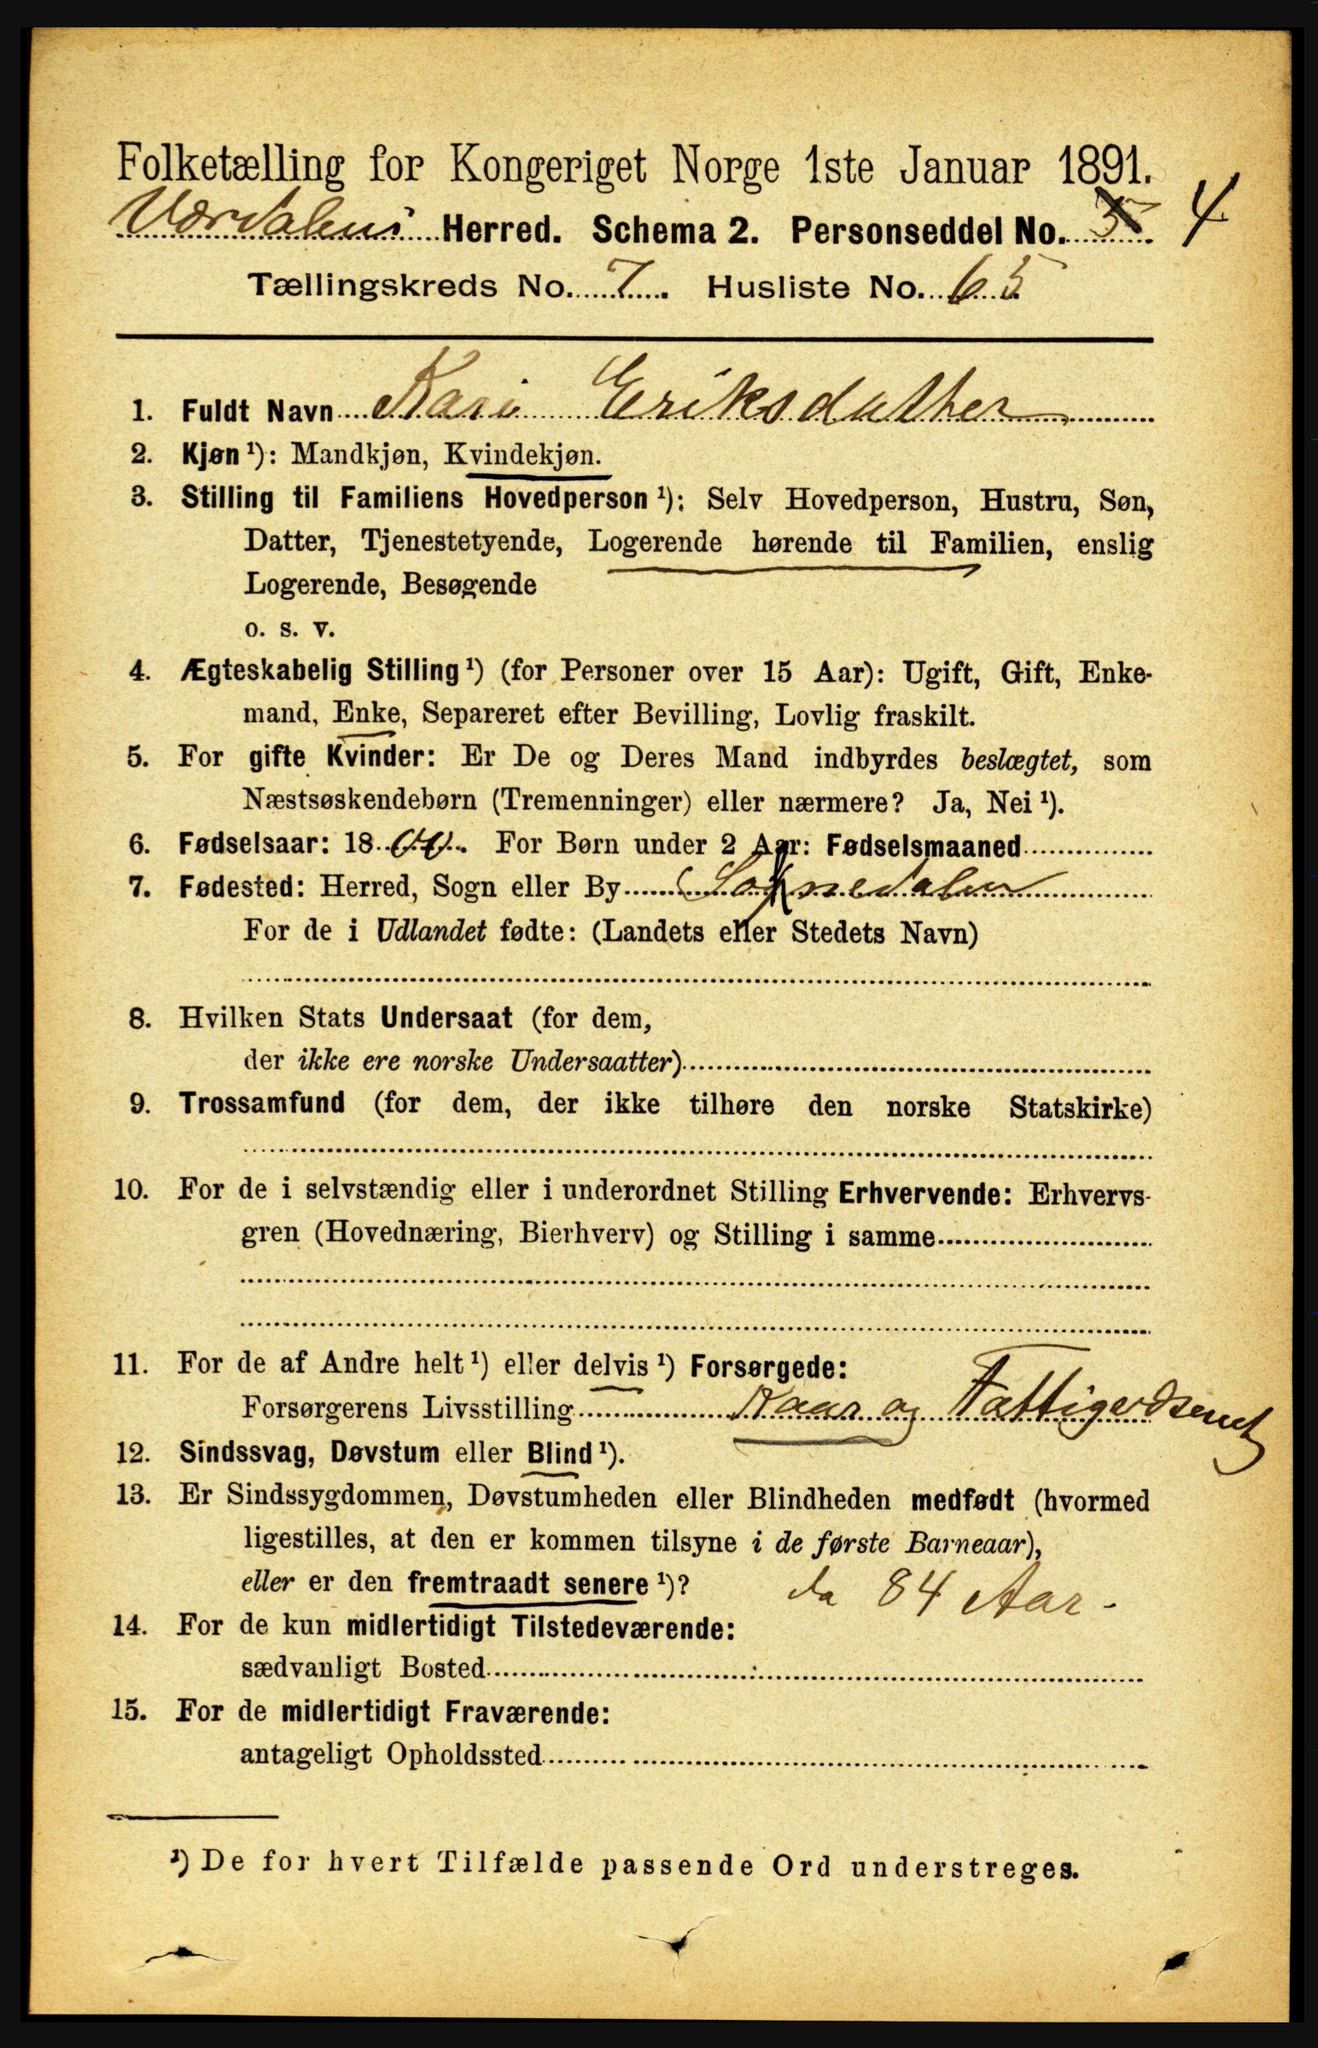 Folketælling for Kongeriget Norge 1ste Januar 1891.
Værdalens Herred. Schema 2. Personseddel No. 5 4
Tællingskreds No. 7. Husliste No. 65
1. Fuldt Navn Kari Eriksdatter
2. Kjøn ¹): Mandkjøn, Kvindekjøn.
3. Stilling til Familiens Hovedperson ¹): Selv Hovedperson, Hustru, Søn,
Datter, Tjenestetyende, Logerende hørende til Familien, enslig
Logerende, Besøgende
o. s. v.
4. Ægteskabelig Stilling ¹) (for Personer over 15 Aar): Ugift, Gift, Enke-
mand, Enke, Separeret efter Bevilling, Lovlig fraskilt.
5. For gifte Kvinder: Er De og Deres Mand indbyrdes beslægtet, som
Næstsøskendebørn (Tremenninger) eller nærmere? Ja, Nei ¹).
6. Fødselsaar: 1800. For Børn under 2 Aar: Fødselsmaaned
7. Fødested: Herred, Sogn eller By Soknedalen
For de i Udlandet fødte: (Landets eller Stedets Navn)
8. Hvilken Stats Undersaat (for dem,
der ikke ere norske Undersaatter)
9. Trossamfund (for dem, der ikke tilhøre den norske Statskirke)
10. For de i selvstændig eller i underordnet Stilling Erhvervende: Erhvervs-
gren (Hovednæring, Bierhverv) og Stilling i samme
11. For de af Andre helt ¹) eller delvis ¹) Forsørgede:
Forsørgerens Livsstilling Kaar og
12. Sindssvag, Døvstum eller Blind ¹).
13. Er Sindssygdommen, Døvstumheden eller Blindheden medfødt (hvormed
ligestilles, at den er kommen tilsyne i de første Barneaar),
eller er den fremtraadt senere ¹)? da 84 Aar.
14. For de kun midlertidigt Tilstedeværende:
sædvanligt Bosted
15. For de midlertidigt Fraværende:
antageligt Opholdssted
¹) De for hvert Tilfælde passende Ord understreges.